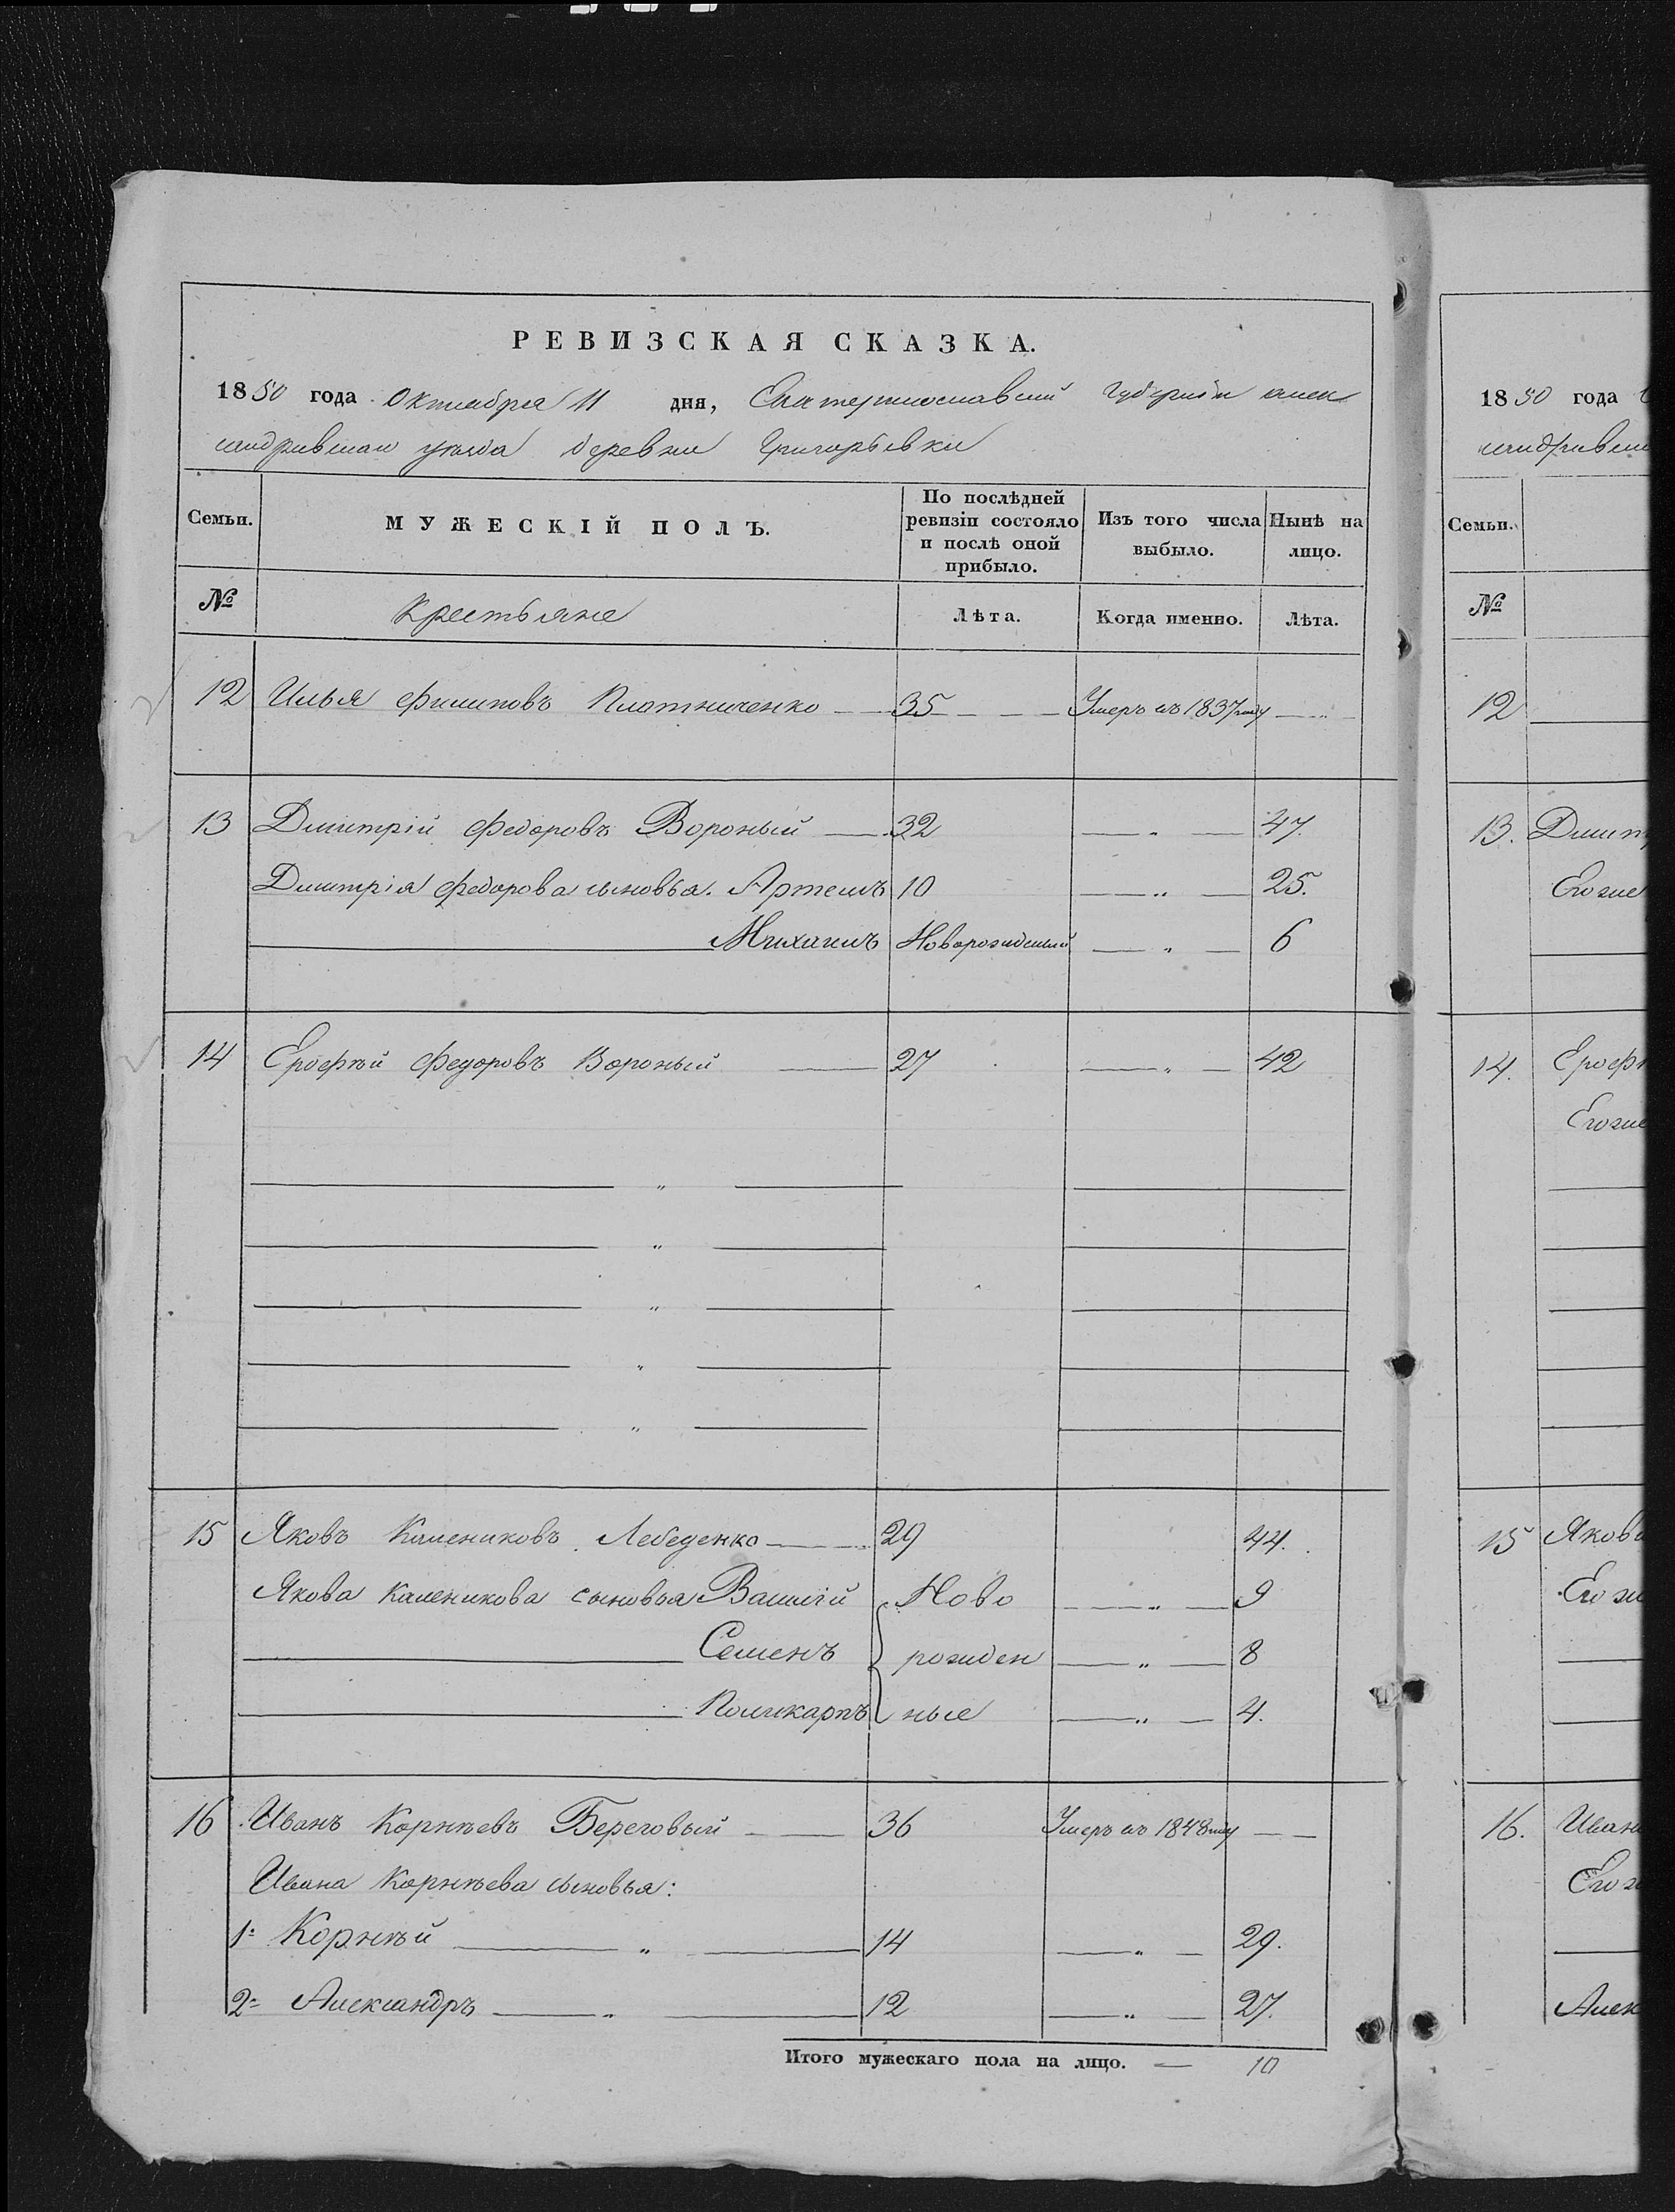 РЕВИЗСКАЯ СКАЗКА.
1850 года Октября 11 дня, Екатеринославской Губернии алек
сандрійскаго уезда деревни Григорьевки
Семьи. МУЖЕСКІЙ ПОЛЪ. По послѣдней ревизіи состояло и послѣ оной прибыло. Изъ того числа выбыло. Нынѣ на лицо.
№ Крестьяне Лѣта. Когда именно. Лѣта.
12 Илья Филиповъ Плотниченко 35 Умеръ въ 1837 году
13 Дмитрій Федоровъ Вороный 32 — „ — 47.
Дмитрія Федорова сыновья. Артемъ 10 — „ — 25.
Михаилъ Новорожденый — „ — 6
14 Ерофѣй Федоровъ Вороный 27 — „ — 42
„
„
„
„
„
15 Яковъ Калениковъ Лебеденко 29 44.
Якова Каленикова сыновья Василій Ново — „ — 9
Семенъ рожден — „ — 8
Поликарпъ ные — „ — 4.
16 Иванъ Корнѣевъ Береговый 36 Умеръ въ 1848 году
Ивана Корнѣева сыновья:
1= Корнѣй — „ — 14 — „ — 29.
2= Александръ — „ — 12 — „ — 27.
Итого мужескаго пола на лицо. — 10
1850 года
Семьи.
№
12
13. Дмит
Его же
14. Ероф
Его же
15 Якова
Его же
16. Иван
Его
Алек